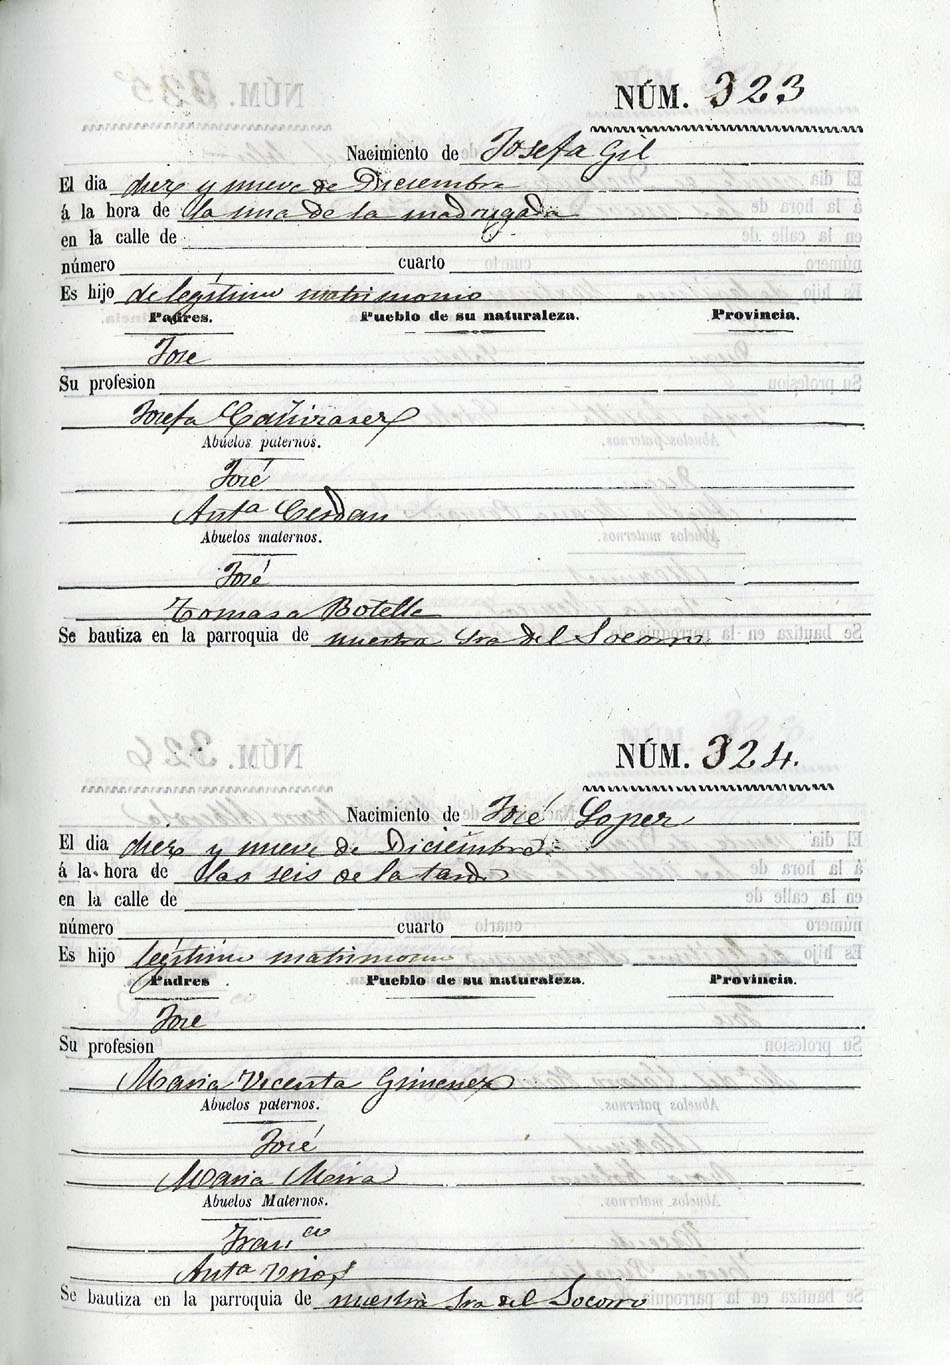 NÚM. 323
Nacimiento de Josefa Gil
El dia diez y nueve de Diciembre
á la hora de la una de la madrugada
en la calle de
número cuarto
Es hijo de legítimo matrimonio
Padres. Pueblo de su naturaleza. Provincia.
Jose
Su profesion
Josefa Cañizares
Abuelos paternos.
José
Anta Cerdan
Abuelos maternos.
José
Tomasa Botella
Se bautiza en la parroquia de nuestra Sra del Socorro
NÚM. 324.
Nacimiento de José Lopez
El dia diez y nueve de Diciembre
á la hora de las seis de la tarde
en la calle de
número cuarto
Es hijo legítimo matrimonio
Padres Pueblo de su naturaleza. Provincia.
Jose
Su profesion
Maria Vicenta Gimenez
Abuelos paternos.
José
Maria Meira
Abuelos Maternos.
Franco
Anta
Se bautiza en la parroquia de nuestra Sra del Socorro